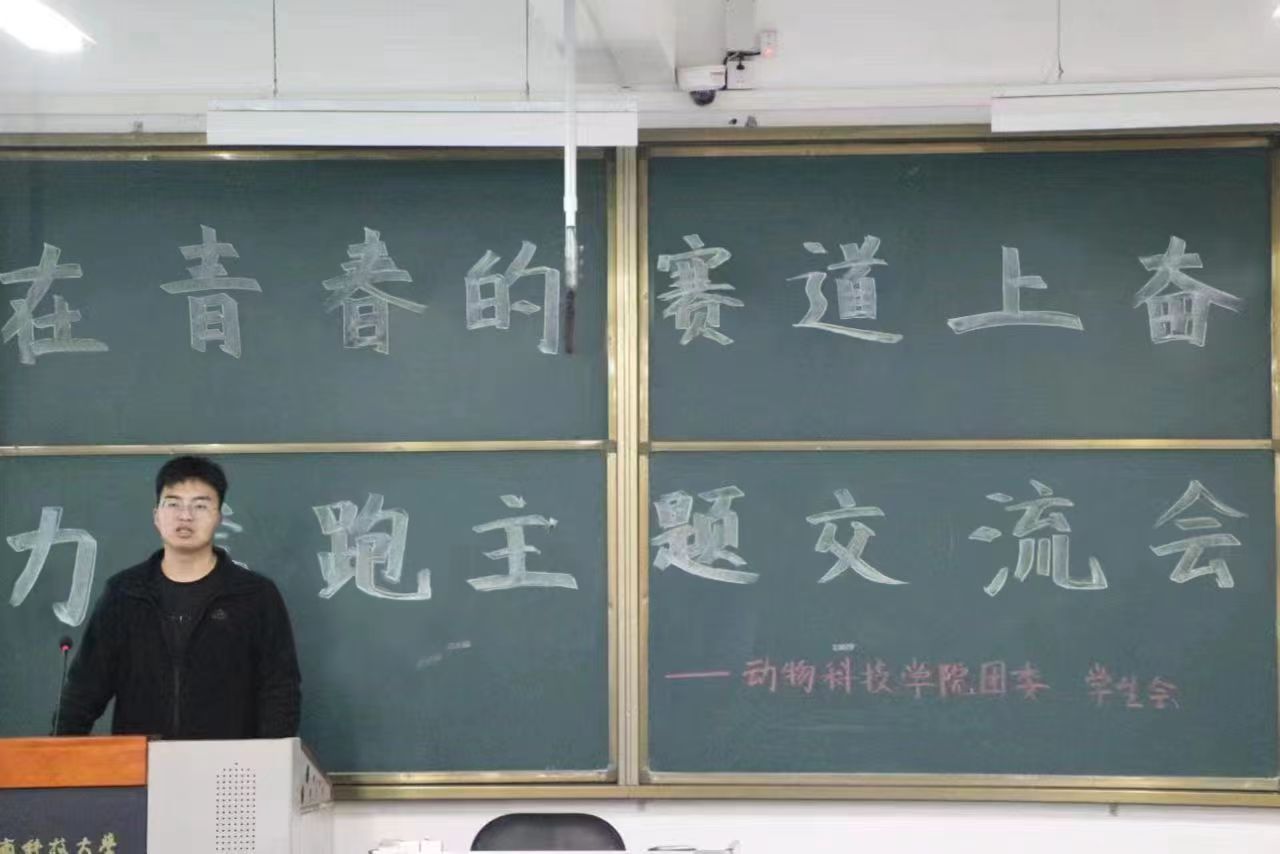 在青春的赛道上奋
力 跑主题交流会
——动物科技学院团委 学生会
科技大学